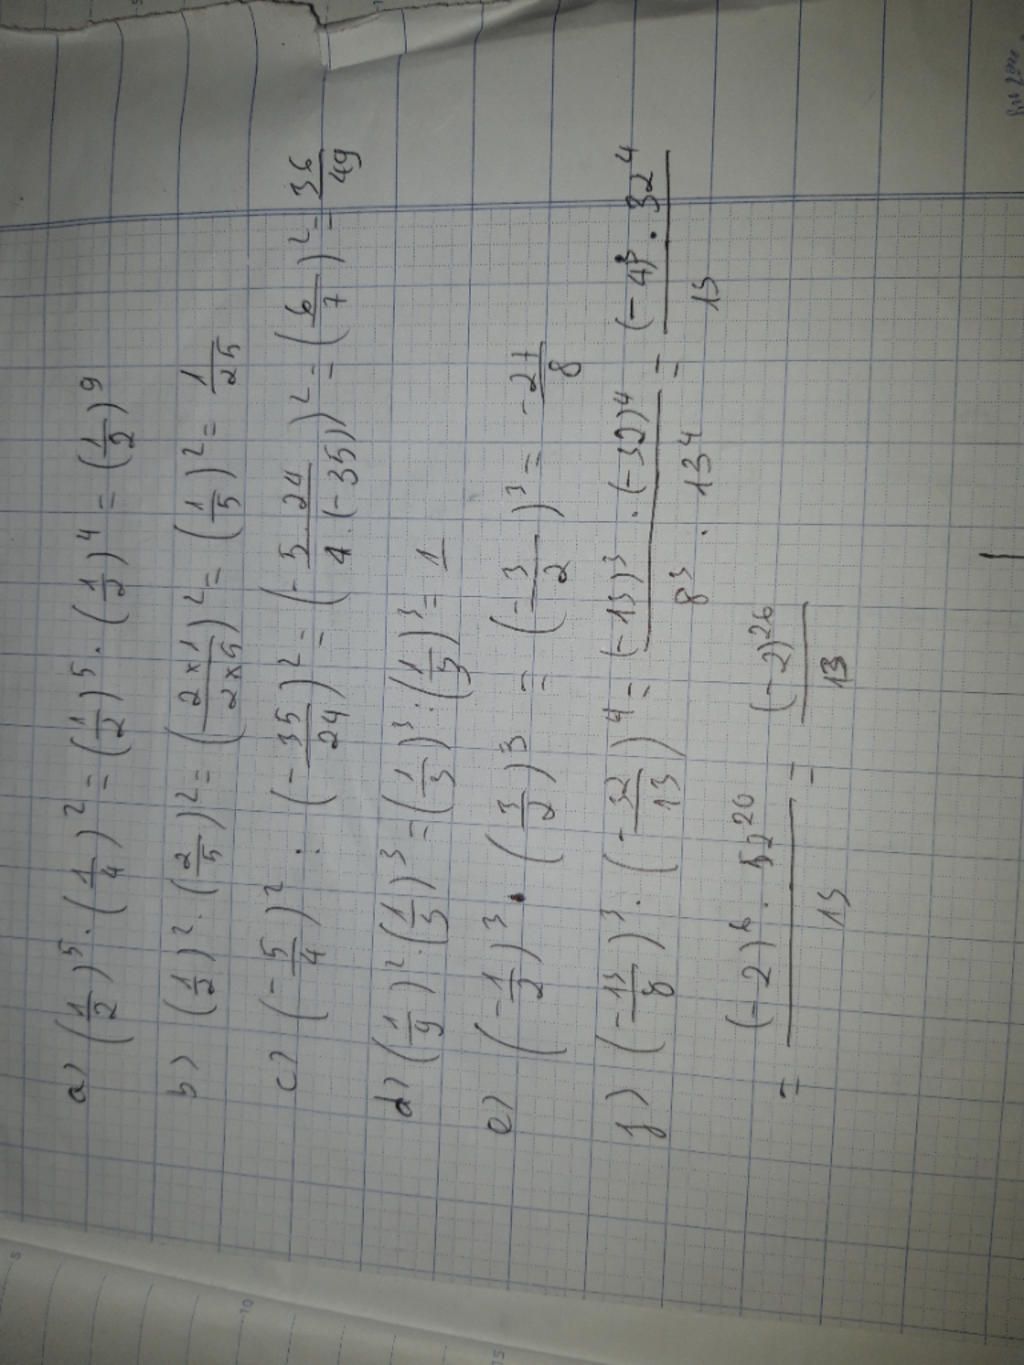 a) (1/2)^5 . (1/4)^2 = (1/2)^5 . (1/2)^4 = (1/2)^9
b) (1/2)^2 . (2/5)^2 = (2×1/2×5)^2 = (1/5)^2 = 1/25
c) (-5/4)^2 : (-35/24)^2 = (-5 . 24/4 . (-35))^2 = (6/7)^2 = 36/49
d) (1/9)^2 . (1/3)^3 = (1/3)^3 : (1/3)^3 = 1
e) (-1/2)^3 . (3/2)^3 = (-3/2)^3 = -27/8
f) (-13/8)^3 . (-32/13)^4 = (-13)^3 . (-32)^4/8^3 . 13^4 = (-4)^3 . 32^4/13
= (-2)^6 . 2^20/13 = (-2)^26/13